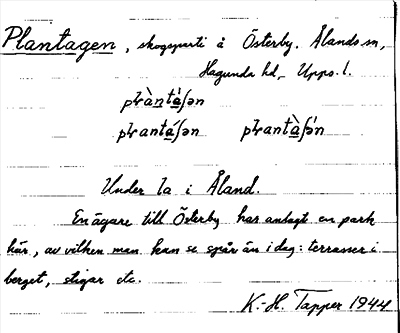 Plantagen, skogsparti å Österby. Ålands sn,
Hagunda hd, Upps. l.
plàntáʃən
plantáʃən plantàʃə́n
Under la i Åland.
En ägare till Österby har anlagt en park
här, av vilken man kan se spår än i dag: terrasser i
berget, stigar etc.
K.-H. Tapper 1944